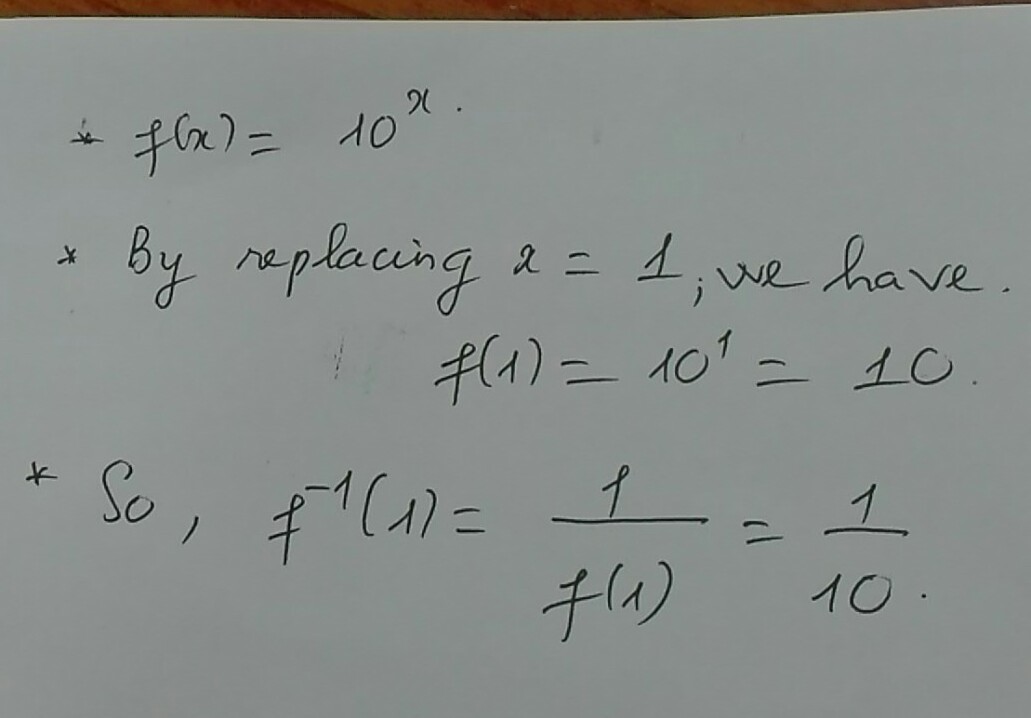 * f(x) = 10^x.
* By replacing x = 1, we have.
f(1) = 10^1 = 10.
* So, f^{-1}(1) = \frac{1}{f(1)} = \frac{1}{10}.